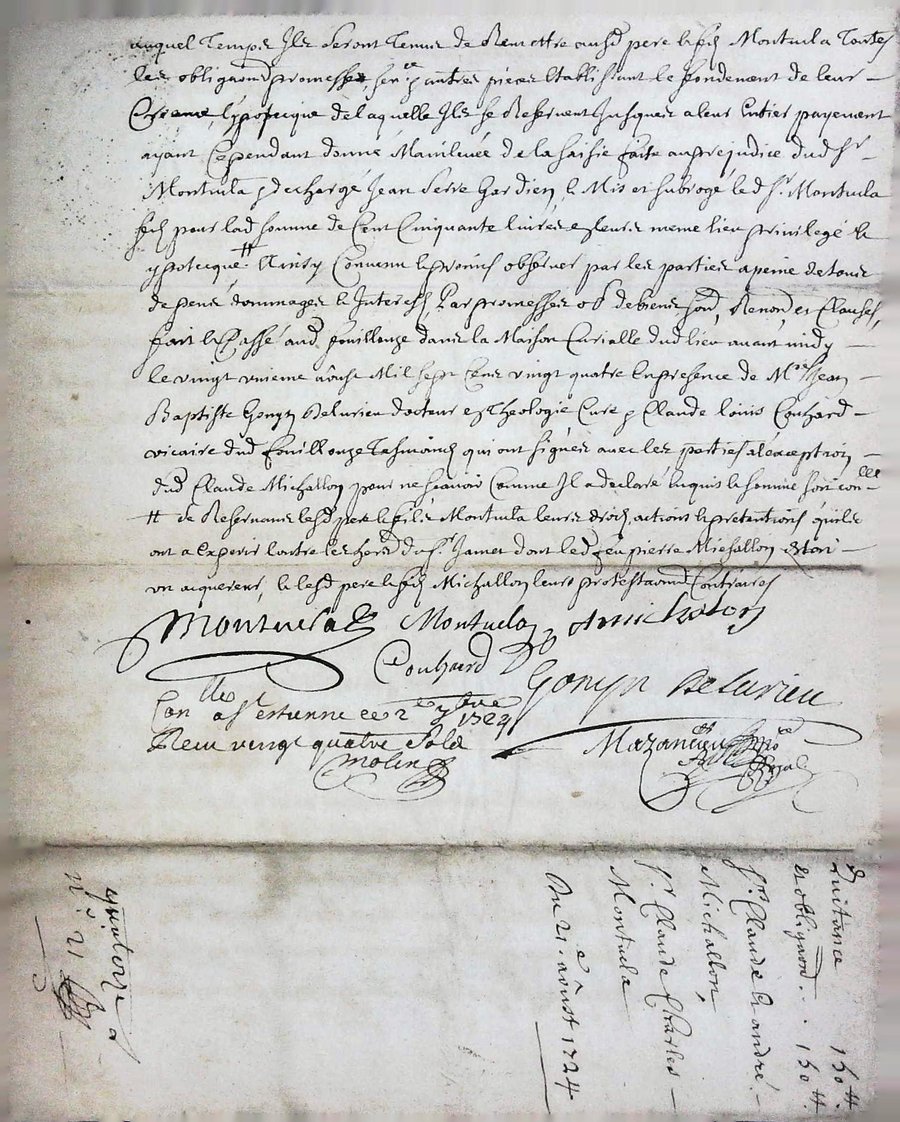 auquel Temps Ils seront Tenus de Remettre ausd pere & fils Montuela Toutes
les obligaons promesses sence & autres pieces Etablissant le fondement de leur
Creance, l'ypoteque de laquelle Ils se Reservent Jusques a leur Entier payement
ayant Cependant donné Mainlevée de la saisie faite au prejudice dud Sr
Montuela & dechargé Jean Serre Gardien, & Mis et subrogé led Sr Montuela
fils pour lad somme de Cent Cinquante livres en leurs meme lieu privilege &
ypotecque # Ainsy Convenu & promis observer par les parties a peine de tous
depens, dommages & Interests, Par promesses ob de biens Renon et Clauses,
fait & Passé aud fouillouze dans la Maison Curialle dud lieu avant midy
le vingt unieme aoust Mil sept Cens vingt quatre En presence de Mre Jean
Baptiste Gonyn Delurieu docteur en Theologie Curé & Claude louis Couhard
vicaire dud fouillouze Tesmoins qui ont signés avec les parties a l'exception
dud Claude Michallon pour ne scavoir Comme Il a declaré Enquis & sommé soit conlle
# se Reservans lesd pere & fils Montuela leurs droits, actions & pretentions qu'ils
ont a Experir Contre les du Sr Jamet dont led feu pierre Michallon Estoit
un aquereur, & lesd pere & fils Michallon leurs protestaons Contraires
Montuela Montuela A michalon
Couhard
Gonyn Delurieu
Conlle a St estienne ce 2e 7bre 1724
Receu vingt quatre Sols
Molin
Mazancieu
Royal
Quitance 150 #
et obligaon .. 150 #
Srs Claude & andré
Michallon,
Sr Claude Charles
Montuela
Du 21e aoûst 1724
quatorze
n° 21